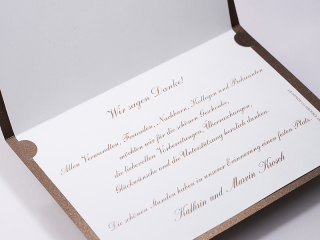 Wir sagen Danke!
Allen Verwandten, Freunden, Nachbarn, Kollegen und Bekannten
möchten wir für die schönen Geschenke,
die liebevollen Vorbereitungen, Überraschungen,
Glückwünsche und die Unterstützung herzlich danken.
Die schönen Stunden haben in unserer Erinnerung einen festen Platz.
Kathrin und Marvin Kirsch